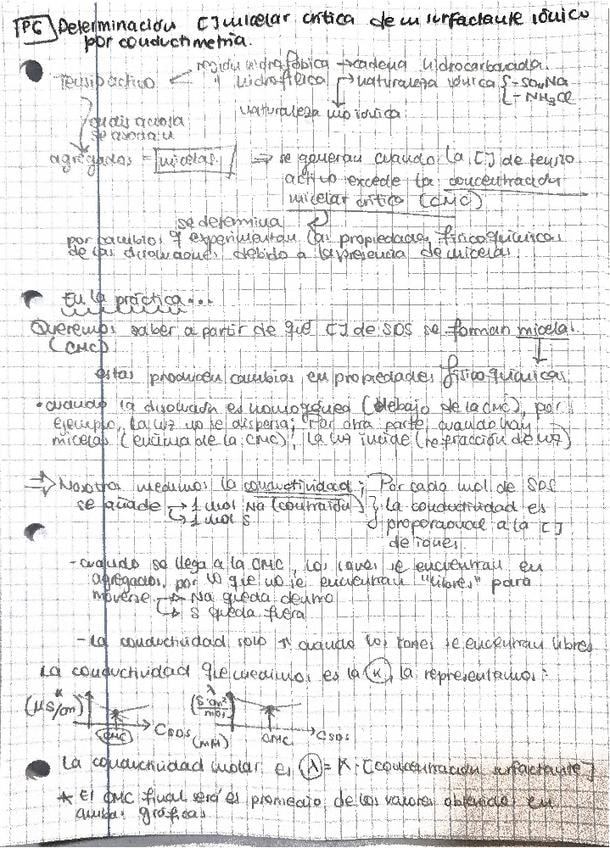 P6 Determinación [ ] micelar crítica de un surfactante iónico
por conductimetría.
Tensioactivo ← región hidrofóbica → cadena hidrocarbonada.
y hidrofílica → naturaleza iónica { -SO4Na
-NH3Cl
naturaleza no iónica
se asocian
agregados = micelas ⇒ se generan cuando la [ ] de tensio
activo excede la concentración
micelar crítica (CMC)
se determina
por cambios q experimentan las propiedades fisicoquímicas
de las disoluciones debido a la presencia de micelas.
En la práctica...
Queremos saber a partir de qué [ ] de SDS se forman micelas.
(CMC)
estas producen cambios en propiedades fisicoquímicas
• cuando la disolución es homogénea (debajo de la CMC), por
ejemplo, la luz no se dispersa; Por otra parte, cuando hay
micelas (encima de la CMC), la luz incide (refracción de luz)
⇒ Nosotros medimos la conductividad; Por cada mol de SDS
se añade → 1 mol Na (contraión) } la conductividad es
→ 1 mol S proporcional a la [ ]
de iones
- cuando se llega a la CMC, los iones se encuentran en
agregados, por lo que no se encuentran "libres" para
moverse → Na queda dentro
→ S queda fuera
- La conductividad solo ↑ cuando los iones se encuentran libres
La conductividad que medimos es la κ, la representamos:
(μS/cm) κ CMC CSDS (mM)
λ (S·cm²/mol) CMC CSDS
La conductividad molar es λ = κ · [concentración surfactante]
* El CMC final será el promedio de los valores obtenidos en
ambas gráficas